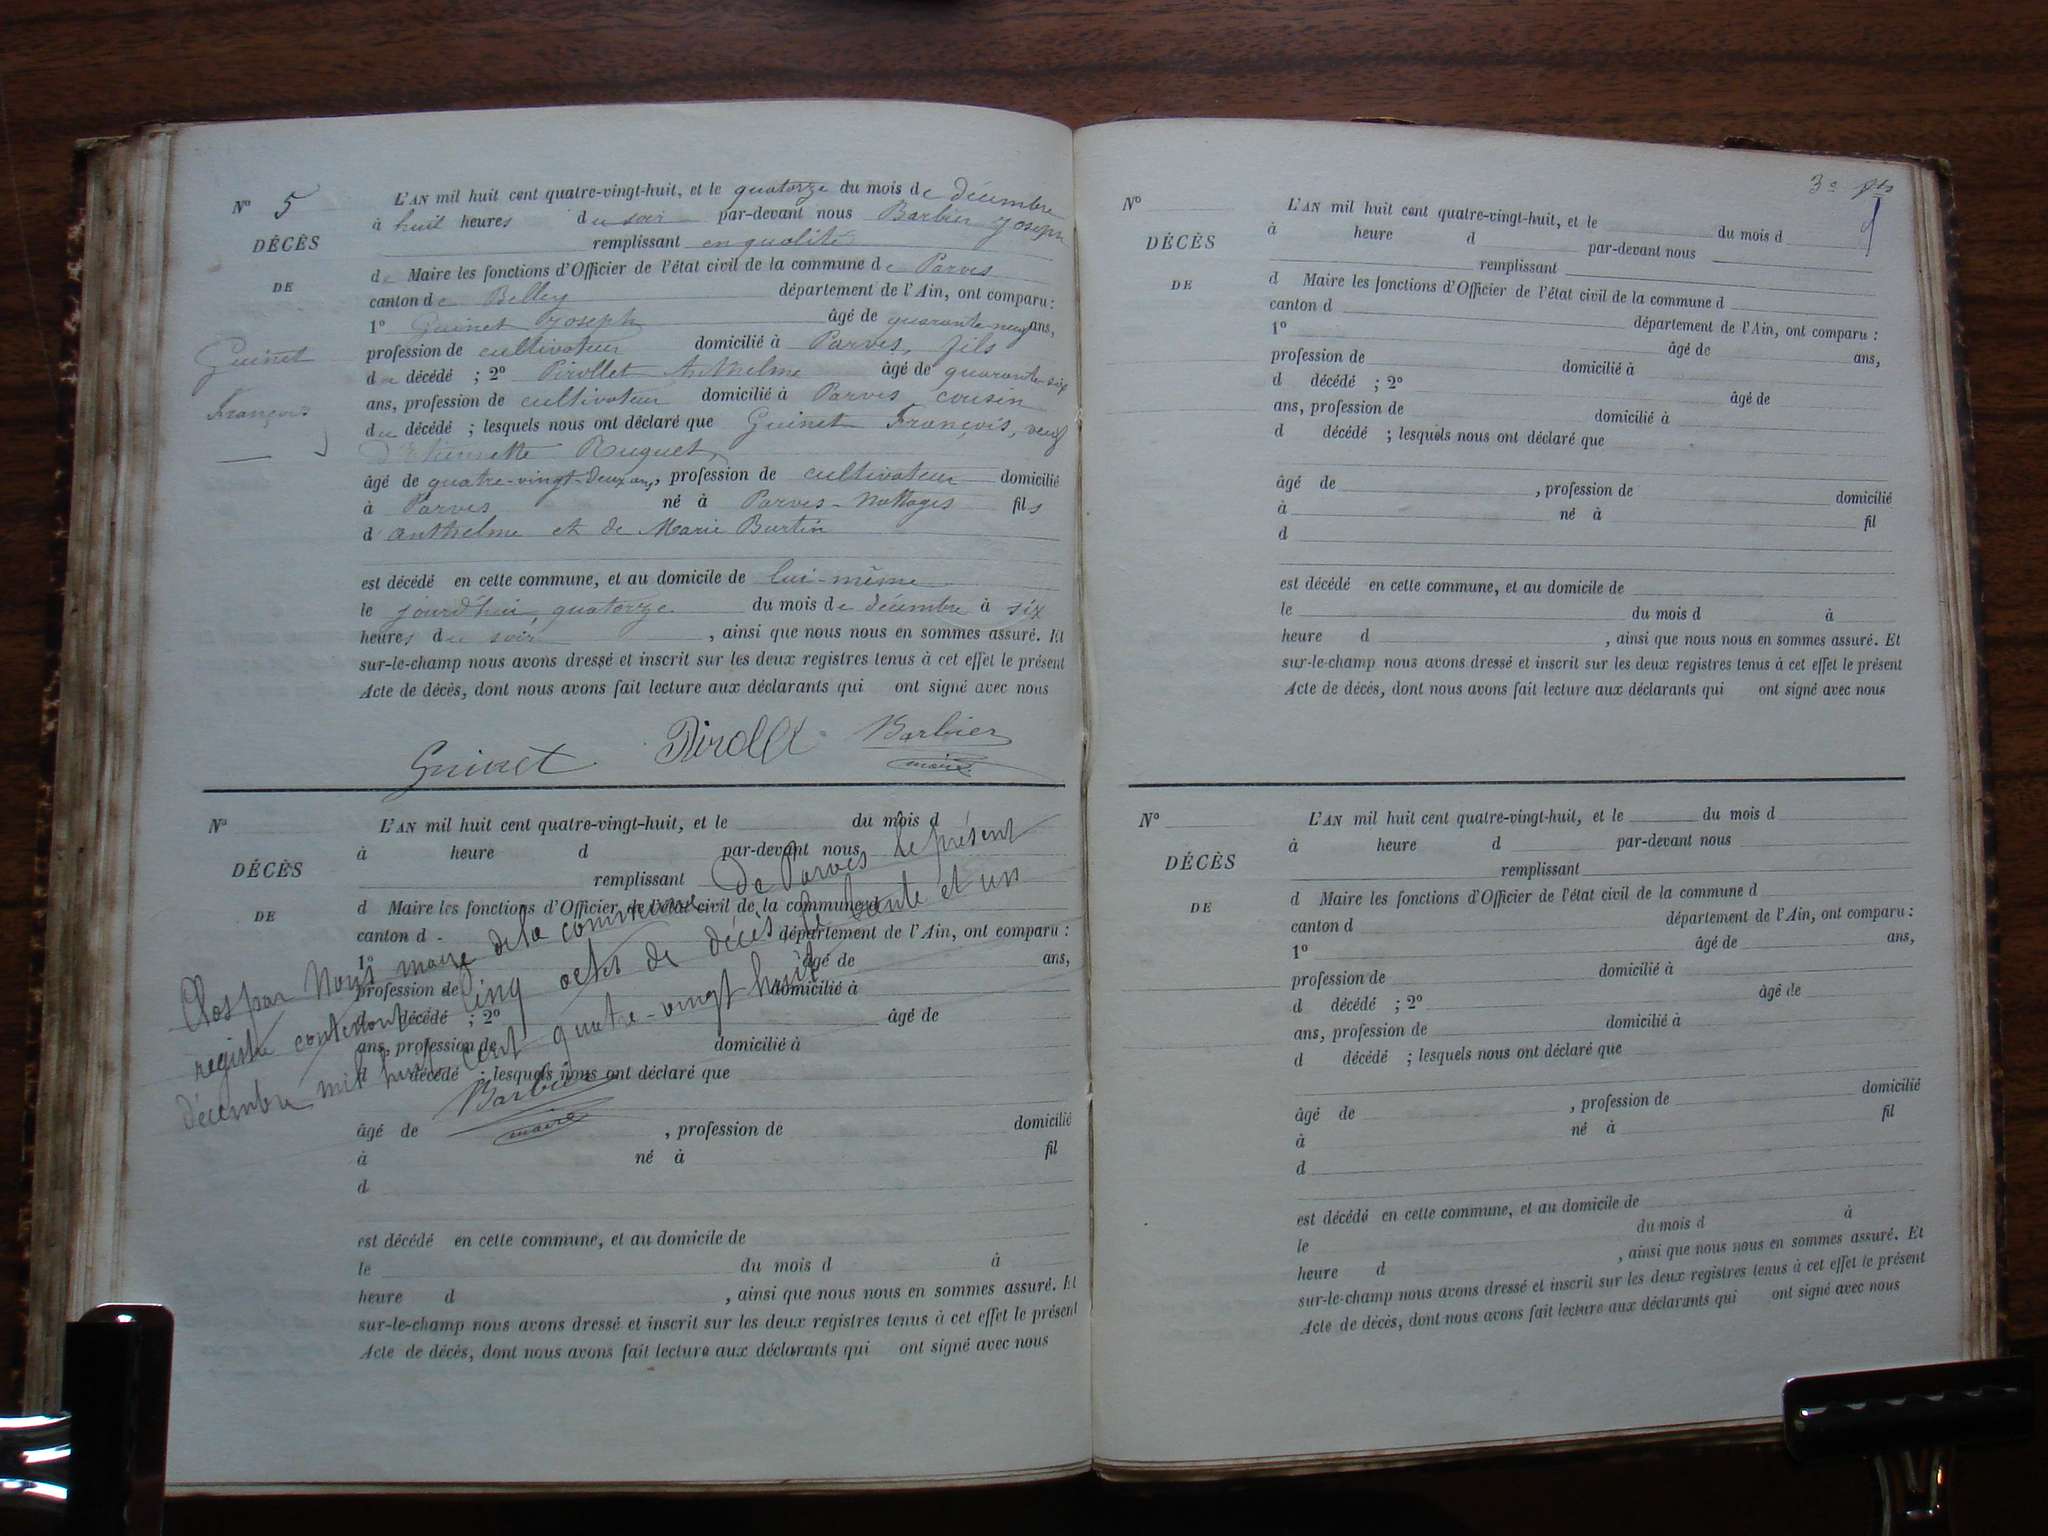 N° 5
DÉCÈS
DE
Guinet
François
L'AN mil huit cent quatre-vingt-huit, et le quatorze du mois de décembre
à huit heures du soir par-devant nous Barbier Joseph
remplissant en qualité
de Maire les fonctions d'Officier de l'état civil de la commune de Parves
canton de Belley département de l'Ain, ont comparu :
1° Guinet Joseph âgé de quarante-neuf ans,
profession de cultivateur domicilié à Parves, fils
du décédé ; 2° Pirollet Anthelme âgé de quarante-six
ans, profession de cultivateur domicilié à Parves cousin
du décédé ; lesquels nous ont déclaré que Guinet François, veuf
D'Etiennette Ruguet,
âgé de quatre-vingt-deux ans, profession de cultivateur domicilié
à Parves né à Parves-Nattages fils
d'anthelme et de Marie Burtin
est décédé en cette commune, et au domicile de lui-même
le jourd'hui quatorze du mois de décembre à six
heures du soir, ainsi que nous nous en sommes assuré. Et
sur-le-champ nous avons dressé et inscrit sur les deux registres tenus à cet effet le présent
Acte de décès, dont nous avons fait lecture aux déclarants qui ont signé avec nous
Guinet Pirollet Barbier
maire
N°
DÉCÈS
DE
L'AN mil huit cent quatre-vingt-huit, et le du mois d
à heure d par-devant nous
remplissant
d Maire les fonctions d'Officier de l'état civil de la commune d
canton d département de l'Ain, ont comparu :
1° âgé de ans,
profession de domicilié à
d décédé ; 2° âgé de
ans, profession de domicilié à
d décédé ; lesquels nous ont déclaré que
âgé de , profession de domicilié
à né à fil
d
est décédé en cette commune, et au domicile de
le du mois d à
heure d , ainsi que nous nous en sommes assuré. Et
sur-le-champ nous avons dressé et inscrit sur les deux registres tenus à cet effet le présent
Acte de décès, dont nous avons fait lecture aux déclarants qui ont signé avec nous
Clos par Nous maire de la commune de Parves le présent
registre contenant cinq actes de décès le trente et un
décembre mil huit cent quatre-vingt huit
Barbier
maire
N°
DÉCÈS
DE
L'AN mil huit cent quatre-vingt-huit, et le du mois d
à heure d par-devant nous
remplissant
d Maire les fonctions d'Officier de l'état civil de la commune d
canton d département de l'Ain, ont comparu :
1° âgé de ans,
profession de domicilié à
d décédé ; 2° âgé de
ans, profession de domicilié à
d décédé ; lesquels nous ont déclaré que
âgé de , profession de domicilié
à né à fil
d
est décédé en cette commune, et au domicile de
le du mois d à
heure d , ainsi que nous nous en sommes assuré. Et
sur-le-champ nous avons dressé et inscrit sur les deux registres tenus à cet effet le présent
Acte de décès, dont nous avons fait lecture aux déclarants qui ont signé avec nous
N°
DÉCÈS
DE
L'AN mil huit cent quatre-vingt-huit, et le du mois d
à heure d par-devant nous
remplissant
d Maire les fonctions d'Officier de l'état civil de la commune d
canton d département de l'Ain, ont comparu :
1° âgé de ans,
profession de domicilié à
d décédé ; 2° âgé de
ans, profession de domicilié à
d décédé ; lesquels nous ont déclaré que
âgé de , profession de domicilié
à né à fil
d
est décédé en cette commune, et au domicile de
le du mois d à
heure d , ainsi que nous nous en sommes assuré. Et
sur-le-champ nous avons dressé et inscrit sur les deux registres tenus à cet effet le présent
Acte de décès, dont nous avons fait lecture aux déclarants qui ont signé avec nous